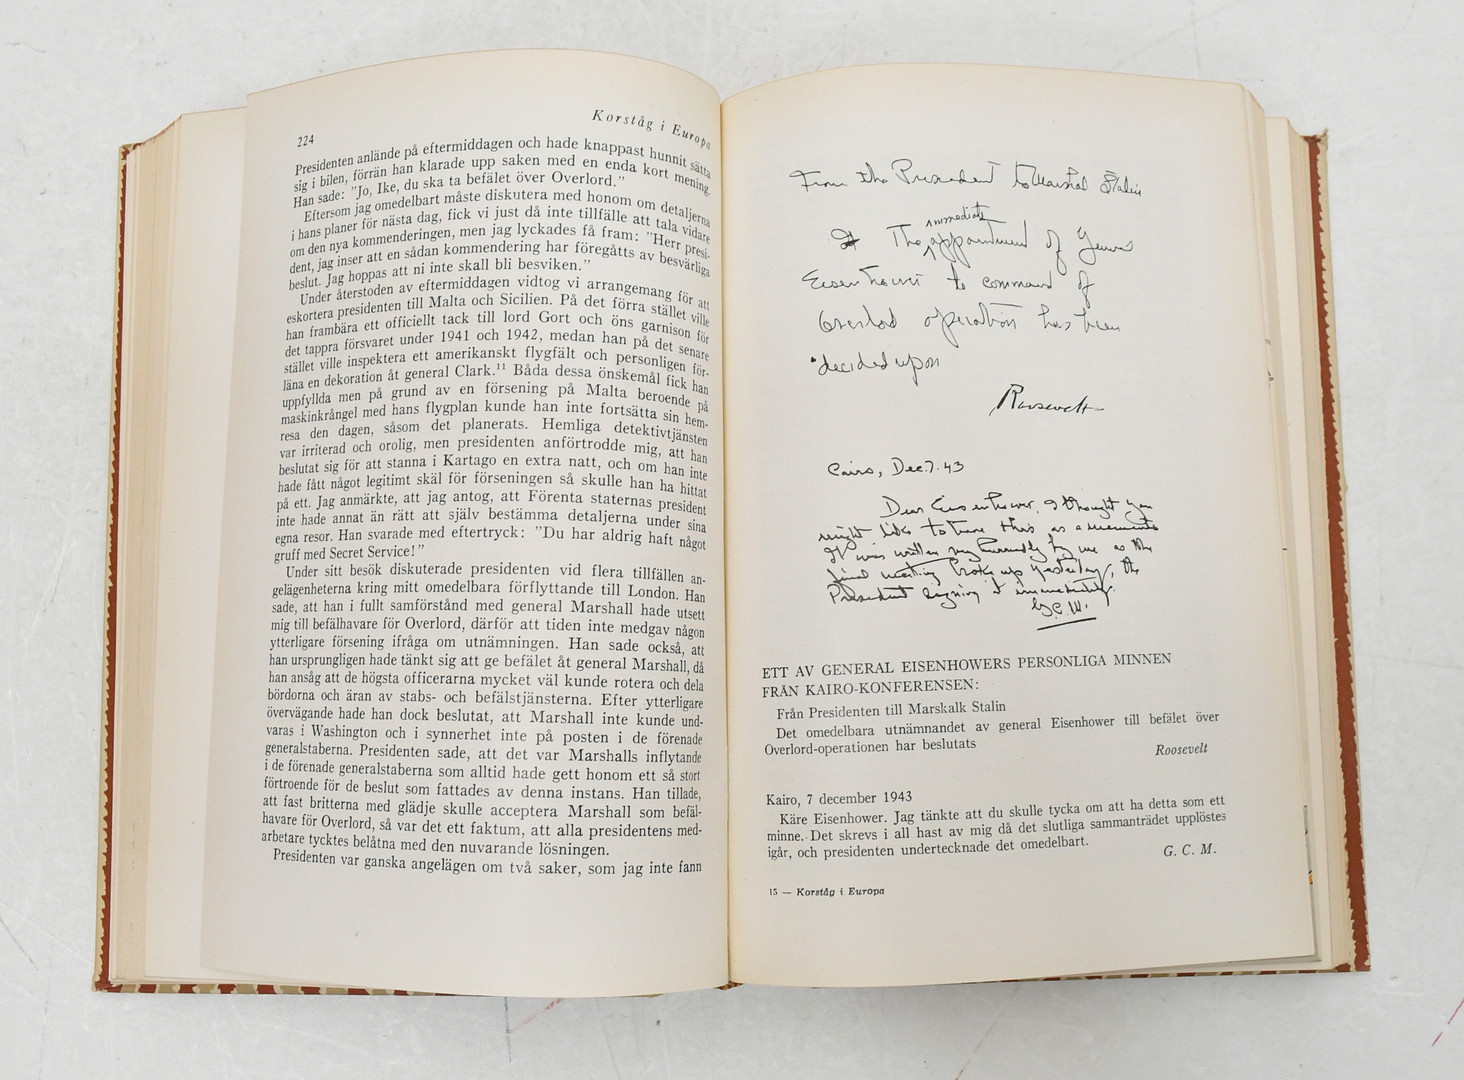 224
Korståg i Europa
Presidenten anlände på eftermiddagen och hade knappast hunnit sätta
sig i bilen, förrän han klarade upp saken med en enda kort mening.
Han sade: "Jo, Ike, du ska ta befälet över Overlord."
Eftersom jag omedelbart måste diskutera med honom om detaljerna
i hans planer för nästa dag, fick vi just då inte tillfälle att tala vidare
om den nya kommenderingen, men jag lyckades få fram: "Herr presi-
dent, jag inser att en sådan kommendering har föregåtts av besvärliga
beslut. Jag hoppas att ni inte skall bli besviken."
Under återstoden av eftermiddagen vidtog vi arrangemang för att
eskortera presidenten till Malta och Sicilien. På det förra stället ville
han frambära ett officiellt tack till lord Gort och öns garnison för
det tappra försvaret under 1941 och 1942, medan han på det senare
stället ville inspektera ett amerikanskt flygfält och personligen för-
läna en dekoration åt general Clark.¹¹ Båda dessa önskemål fick han
uppfyllda men på grund av en försening på Malta beroende på
maskinkrångel med hans flygplan kunde han inte fortsätta sin hem-
resa den dagen, såsom det planerats. Hemliga detektivtjänsten
var irriterad och orolig, men presidenten anförtrodde mig, att han
beslutat sig för att stanna i Kartago en extra natt, och om han inte
hade fått något legitimt skäl för förseningen så skulle han ha hittat
på ett. Jag anmärkte, att jag antog, att Förenta staternas president
inte hade annat än rätt att själv bestämma detaljerna under sina
egna resor. Han svarade med eftertryck: "Du har aldrig haft något
gruff med Secret Service!"
Under sitt besök diskuterade presidenten vid flera tillfällen an-
gelägenheterna kring mitt omedelbara förflyttande till London. Han
sade, att han i fullt samförstånd med general Marshall hade utsett
mig till befälhavare för Overlord, därför att tiden inte medgav någon
ytterligare försening ifråga om utnämningen. Han sade också, att
han ursprungligen hade tänkt sig att ge befälet åt general Marshall, då
han ansåg att de högsta officerarna mycket väl kunde rotera och dela
bördorna och äran av stabs- och befälstjänsterna. Efter ytterligare
övervägande hade han dock beslutat, att Marshall inte kunde und-
varas i Washington och i synnerhet inte på posten i de förenade
generalstaberna. Presidenten sade, att det var Marshalls inflytande
i de förenade generalstaberna som alltid hade gett honom ett så stort
förtroende för de beslut som fattades av denna instans. Han tillade,
att fast britterna med glädje skulle acceptera Marshall som befäl-
havare för Overlord, så var det ett faktum, att alla presidentens med-
arbetare tycktes belåtna med den nuvarande lösningen.
Presidenten var ganska angelägen om två saker, som jag inte fann
From the President to Marshal Stalin
immediate
The appointment of General
Eisenhower to command of
Overlord operation has been
decided upon
Roosevelt
Cairo, Dec. 7. 43
Dear Eisenhower, I thought you
might like to have this as a memento
It was written very hurriedly by me as the
final meeting broke up yesterday, the
President signing it immediately.
G. C. M.
ETT AV GENERAL EISENHOWERS PERSONLIGA MINNEN
FRÅN KAIRO-KONFERENSEN:
Från Presidenten till Marskalk Stalin
Det omedelbara utnämnandet av general Eisenhower till befälet över
Overlord-operationen har beslutats
Roosevelt
Kairo, 7 december 1943
Käre Eisenhower. Jag tänkte att du skulle tycka om att ha detta som ett
minne. Det skrevs i all hast av mig då det slutliga sammanträdet upplöstes
igår, och presidenten undertecknade det omedelbart.
G. C. M.
15 — Korståg i Europa